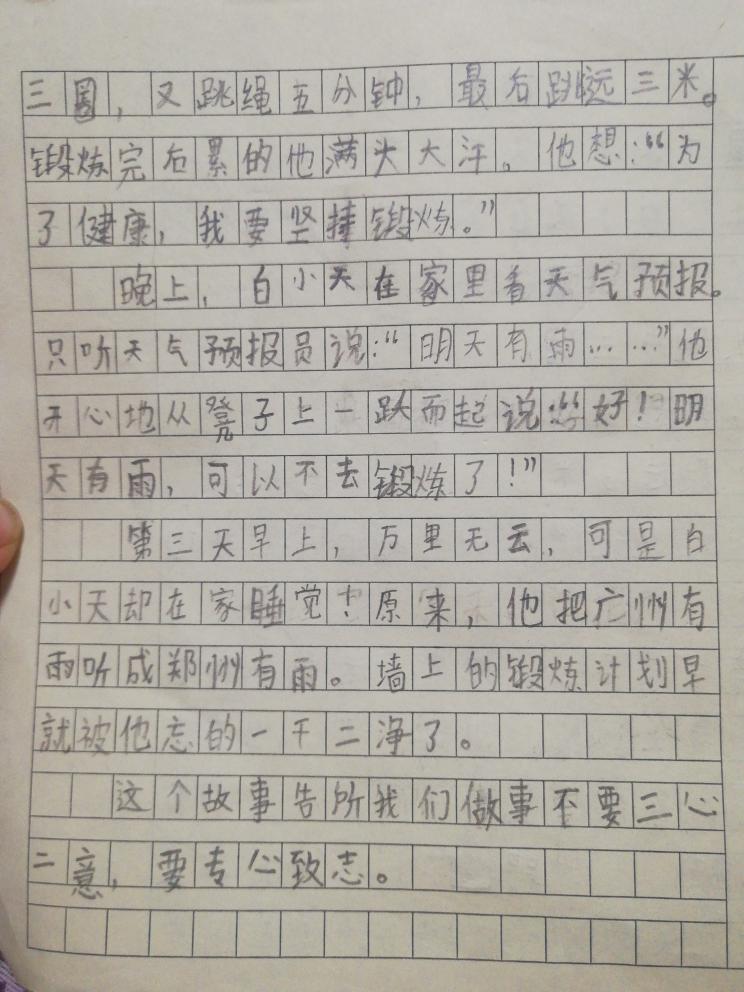 三圈，又跳绳五分钟，最后跳远三米。
锻炼完后累的他满头大汗。他想：“为
了健康，我要坚捧锻炼。”
晚上，白小天在家里看天气预报。
只听天气预报员说：“明天有雨……”他
开心地从凳子上一跃而起说：“好！明
天有雨，可以不去锻炼了！”
第三天早上，万里无云，可是白
小天却在家睡觉！原来，他把广州有
雨听成郑州有雨。墙上的锻炼计划早
就被他忘的一干二净了。
这个故事告所我们做事不要三心
二意，要专心致志。